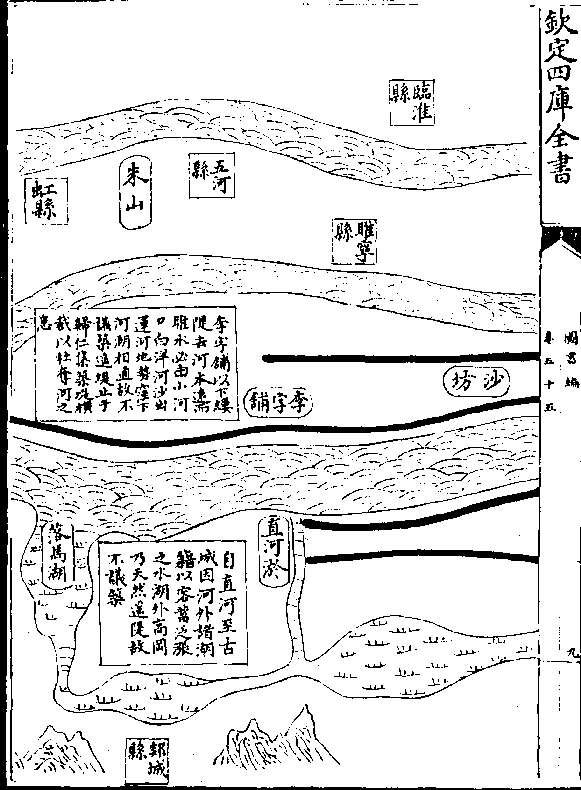 欽定四庫全書
圖書編
卷五十五
九
臨淮
縣
五河
縣
朱山
虹縣
睢寧
縣
沙坊
李字舖
李字舖以下縷
隄去河本遠
睢水必由小河
口向洋河沙出
運河地勢窪下
河湖相直故不
議築遥堤止于
歸仁集築堤横
截以杜奪河之
患
直河淤
落馬湖
自直河至古
城因河外諸湖
籍以容蓄泛漲
之水湖外高岡
乃天然遥隄故
不議築
郯城
縣